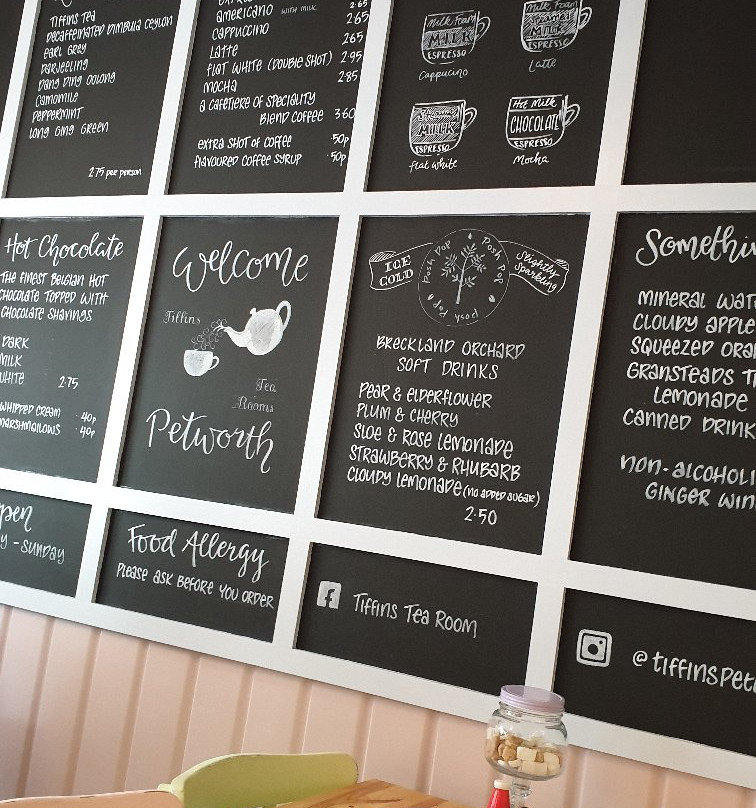 Tiffins Tea
Decaffeinated Dimbula Ceylon
Earl Grey
Darjeeling
Dang Ding Oolong
Camomile
Peppermint
Long Ging Green
2.75 per person
americano with milk 2.65
cappuccino 2.65
Latte 2.65
flat white (double shot) 2.95
mocha 2.85
a cafetiere of speciality
Blend coffee 3.60
extra shot of coffee .50p
flavoured coffee syrup .50p
Milk Foam
MILK
ESPRESSO
Cappucino
MILK
ESPRESSO
Latte
MILK
ESPRESSO
flat white
Hot Milk
CHOCOLATE
ESPRESSO
Mocha
Hot Chocolate
The finest Belgian Hot
Chocolate topped with
chocolate shavings
DARK
MILK
WHITE 2.75
WHIPPED CREAM .40p
MARSHMALLOWS .40p
Welcome
Tiffins
Tea
Rooms
Petworth
ICE
COLD
Posh Pop Posh Pop Posh Pop
Slightly
Sparkling
Breckland Orchard
Soft Drinks
Pear & Elderflower
Plum & Cherry
Sloe & Rose Lemonade
Strawberry & Rhubarb
Cloudy Lemonade (no added sugar)
2.50
Somethi
mineral wat
cloudy apple
squeezed ora
Gransteads T
Lemonade
canned drink
non-alcoholi
ginger win
pen
y - Sunday
Food Allergy
Please ask before you order
f Tiffins Tea Room
@tiffinspet